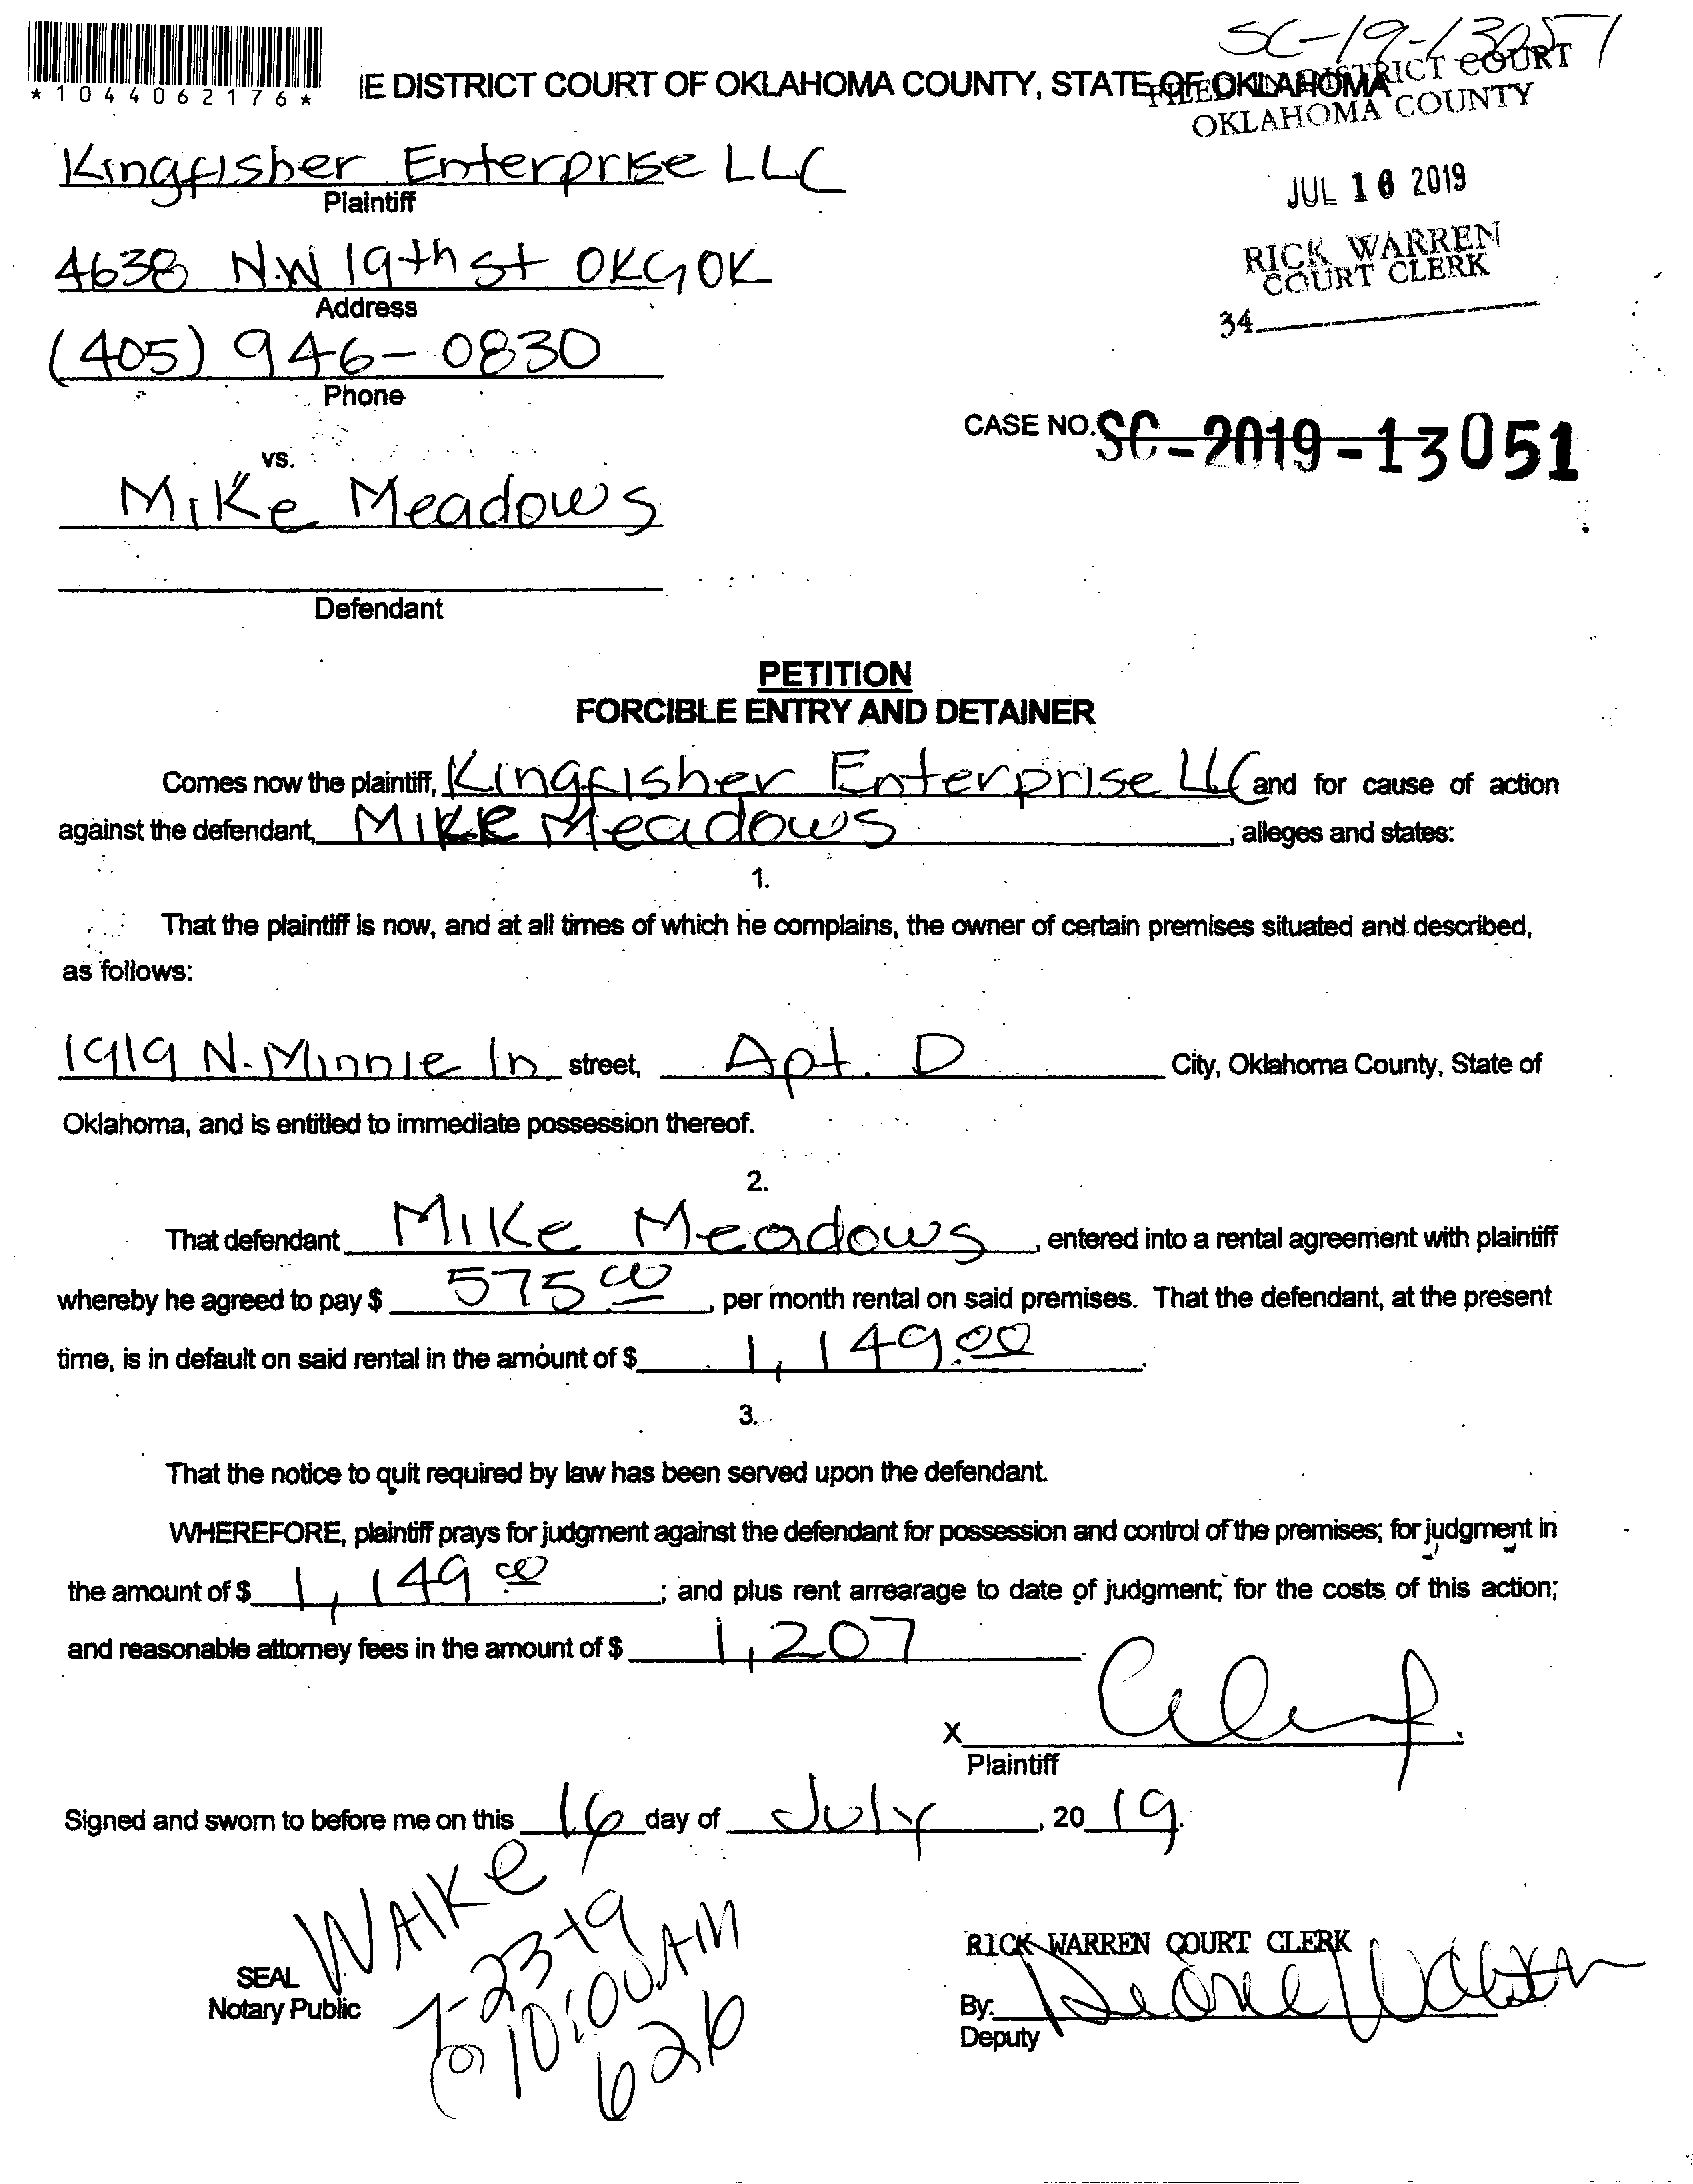 SC-19-13051
*1044062176*
IE DISTRICT COURT OF OKLAHOMA COUNTY, STATE OF OKLAHOMA
FILED IN DISTRICT COURT
OKLAHOMA COUNTY
Kingfisher Enterprise LLC
Plaintiff
JUL 16 2019
4638 N.W 19th st OKC, OK
Address
RICK WARREN
COURT CLERK
34
(405) 946-0830
Phone
CASE NO. SC-2019-13051
vs.
Mike Meadows
Defendant
PETITION
FORCIBLE ENTRY AND DETAINER
Comes now the plaintiff, Kingfisher Enterprise LLC and for cause of action
against the defendant, Mike Meadows, alleges and states:
1.
That the plaintiff is now, and at all times of which he complains, the owner of certain premises situated and described,
as follows:
1919 N. Minnie ln street, Apt. D City, Oklahoma County, State of
Oklahoma, and is entitled to immediate possession thereof.
2.
That defendant Mike Meadows, entered into a rental agreement with plaintiff
whereby he agreed to pay $ 575 00, per month rental on said premises. That the defendant, at the present
time, is in default on said rental in the amount of $ 1,149.00.
3.
That the notice to quit required by law has been served upon the defendant.
WHEREFORE, plaintiff prays for judgment against the defendant for possession and control of the premises; for judgment in
the amount of $ 1,149 00; and plus rent arrearage to date of judgment; for the costs of this action;
and reasonable attorney fees in the amount of $ 1,207
X
Plaintiff
Signed and sworn to before me on this 16 day of July, 20 19.
WAlKe
7-23-19
10:00 AM
626
SEAL
Notary Public
RICK WARREN COURT CLERK
By:
Deputy